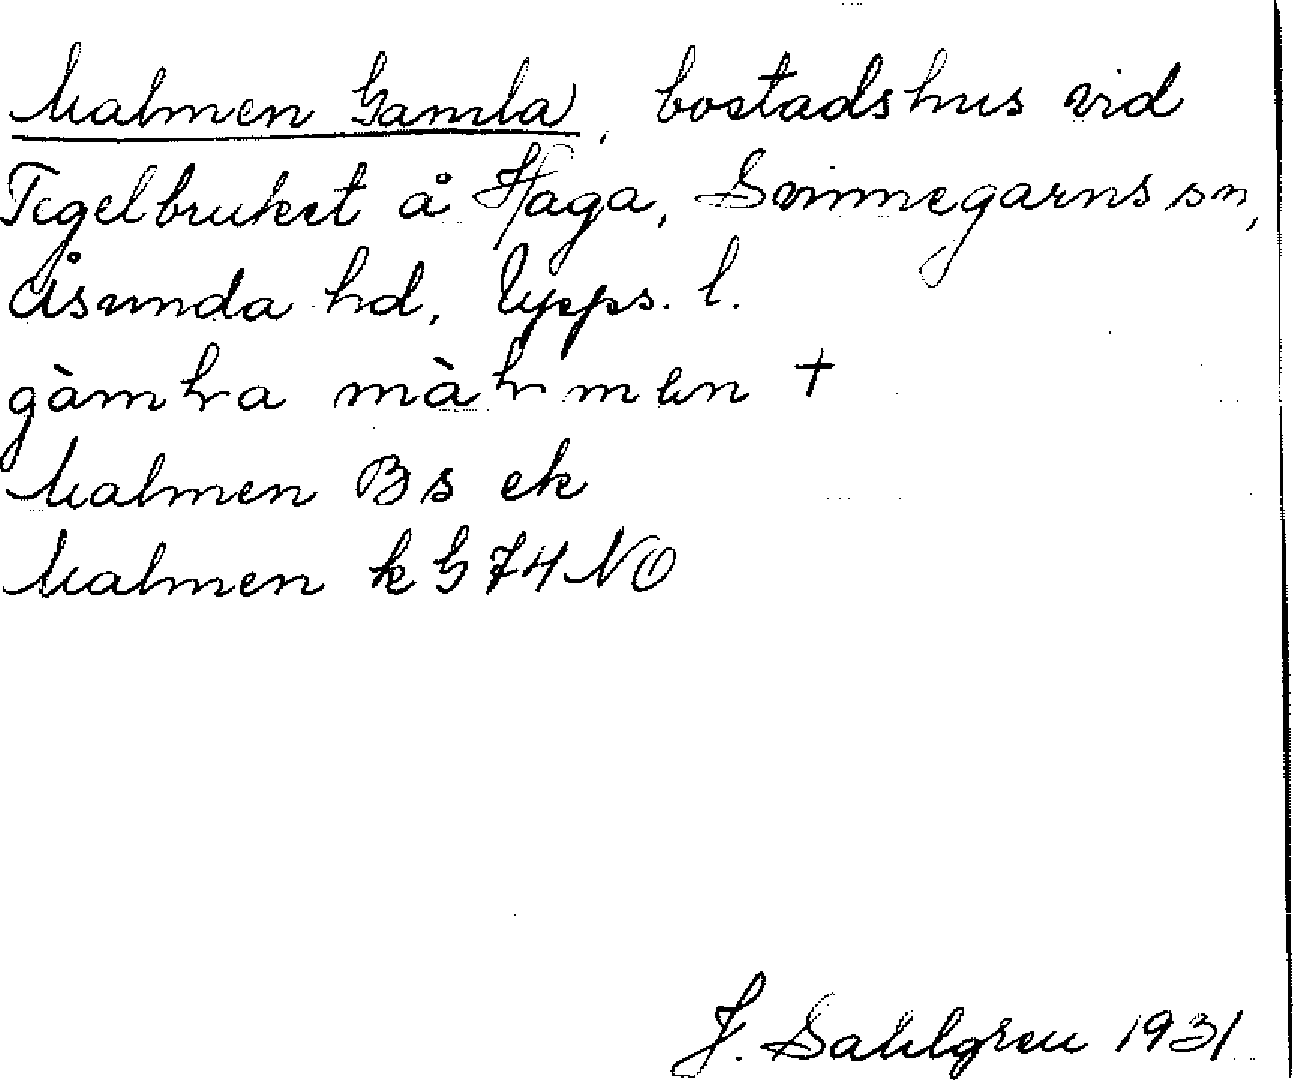 Malmen Gamla, bostadshus vid
Tegelbruket å Haga, Svinnegarns sn,
Åsunda hd, Upps. l.
gàmla màlmen +
Malmen Bs ek
Malmen k G 74 NO
J. Sahlgren 1931